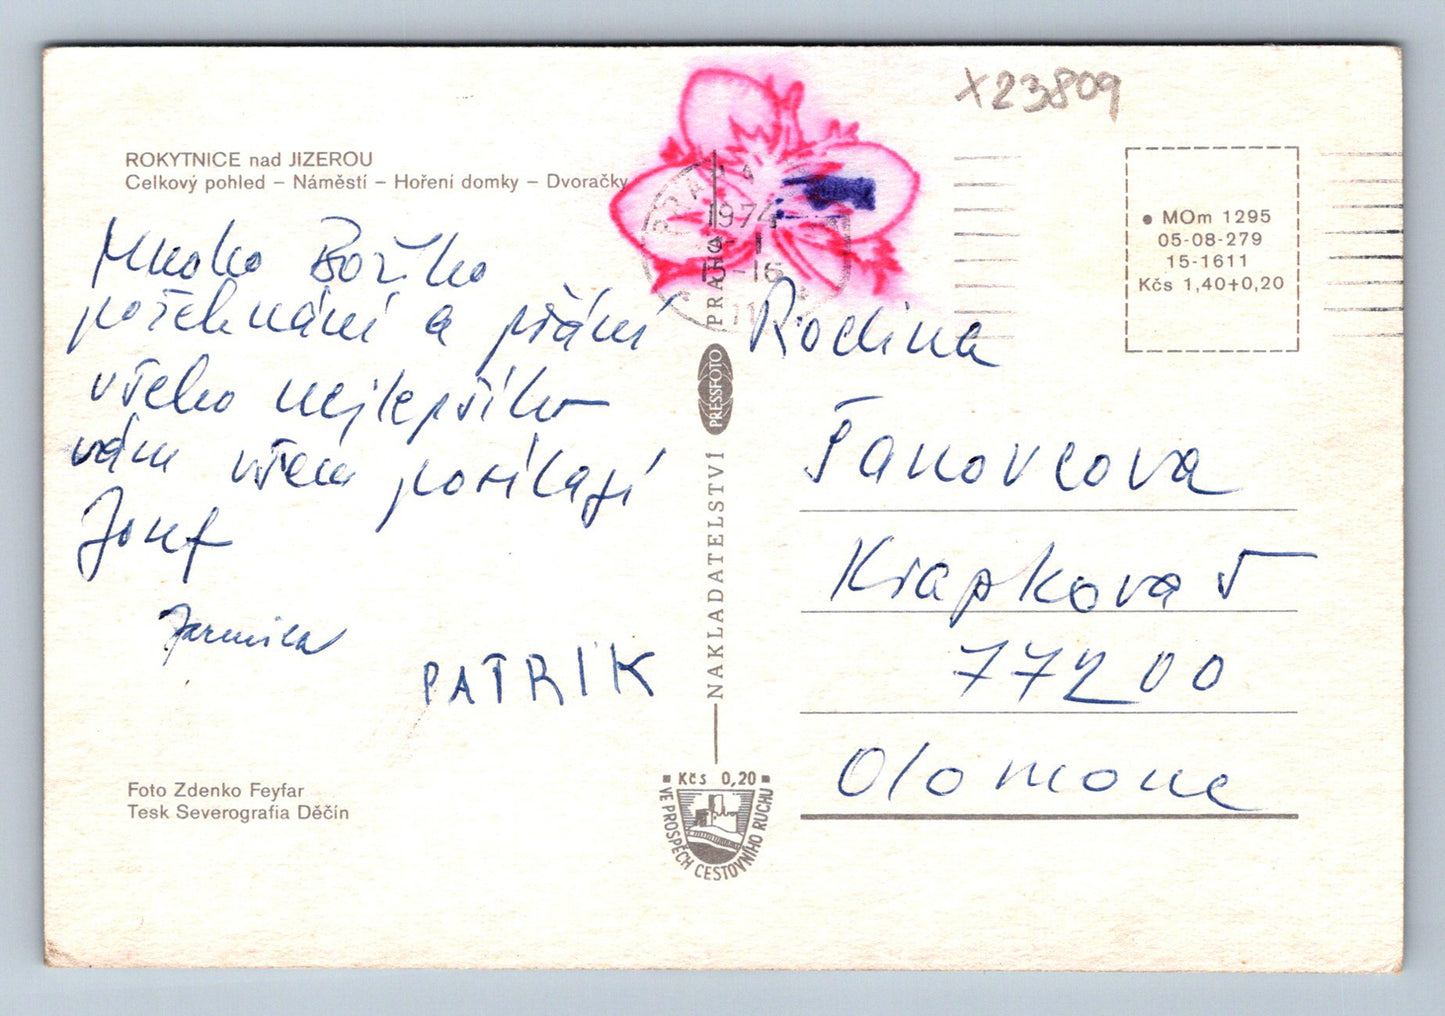 x23809
ROKYTNICE nad JIZEROU
Celkový pohled – Náměstí – Hoření domky – Dvoračky
Mnoho Božího
požehnání a přání
všeho nejlepšího
vám všem posílají
Josef
Jarmila
PATRIK
Foto Zdenko Feyfar
Tesk Severografia Děčín
PRAHA
1974
-16
NAKLADATELSTVÍ PRESSFOTO PRAHA
Kčs 0,20
VE PROSPĚCH CESTOVNÍHO RUCHU
● MOm 1295
05-08-279
15-1611
Kčs 1,40+0,20
Rodina
Krapkova 5
77200
Olomouc